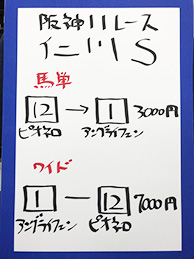 阪神11レース
仁川S
馬単
12 → 1 3000円
ピオネロ アングライフェン
ワイド
1 — 12 7000円
アングライフェン ピオネロ